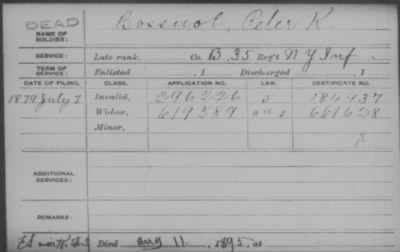 DEAD
NAME OF SOLDIER: Bossuot, Peter K
SERVICE: Late rank, Co. B, 35 Reg't N Y Inf
TERM OF SERVICE: Enlisted , 1 Discharged , 1
DATE OF FILING. CLASS. APPLICATION NO. LAW. CERTIFICATE NO.
1879 July 7 Invalid, 296226 184937
Widow, 619589 661628
Minor,
ADDITIONAL SERVICES:
REMARKS:
Died Aug 11, 1895, at